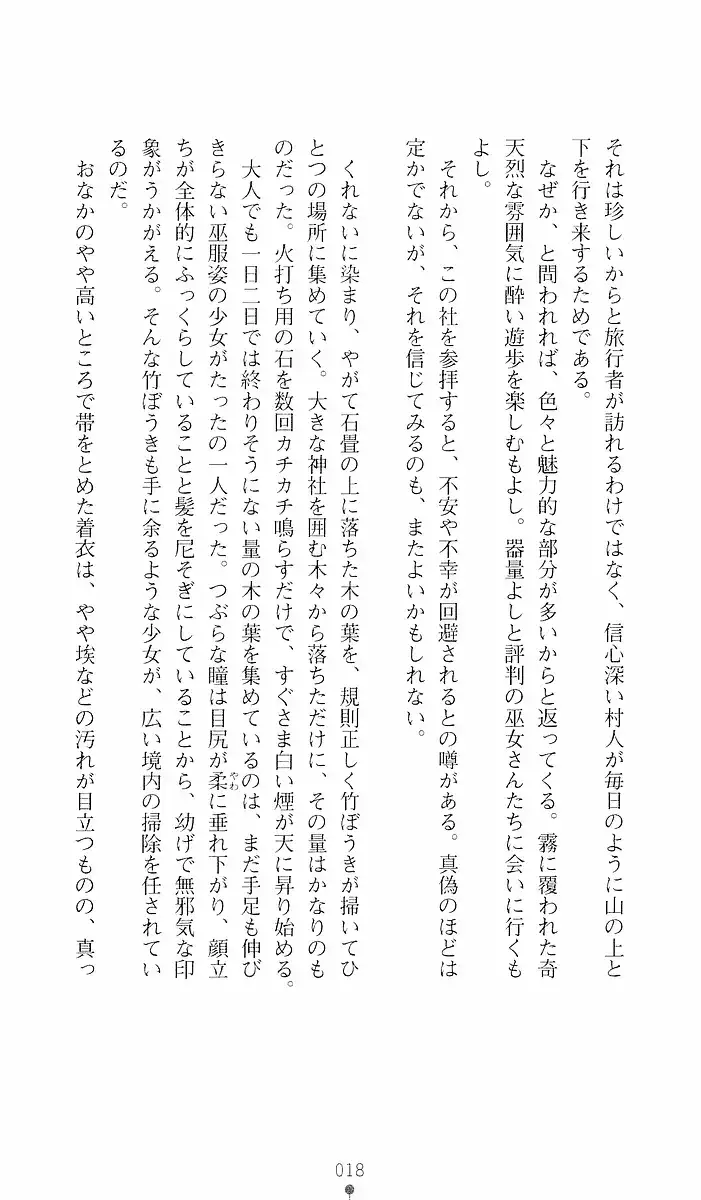 それは珍しいからと旅行者が訪れるわけではなく、信心深い村人が毎日のように山の上と
下を行き来するためである。
なぜか、と問われれば、色々と魅力的な部分が多いからと返ってくる。霧に覆われた奇
天烈な雰囲気に酔い遊歩を楽しむもよし。器量よしと評判の巫女さんたちに会いに行くも
よし。
それから、この社を参拝すると、不安や不幸が回避されるとの噂がある。真偽のほどは
定かでないが、それを信じてみるのも、またよいかもしれない。
くれないに染まり、やがて石畳の上に落ちた木の葉を、規則正しく竹ぼうきが掃いてひ
とつの場所に集めていく。大きな神社を囲む木々から落ちただけに、その量はかなりのも
のだった。火打ち用の石を数回カチカチ鳴らすだけで、すぐさま白い煙が天に昇り始める。
大人でも一日二日では終わりそうにない量の木の葉を集めているのは、まだ手足も伸び
きらない巫服姿の少女がたったの一人だった。つぶらな瞳は目尻が柔やわに垂れ下がり、顔立
ちが全体的にふっくらしていることと髪を尼そぎにしていることから、幼げで無邪気な印
象がうかがえる。そんな竹ぼうきも手に余るような少女が、広い境内の掃除を任されてい
るのだ。
おなかのやや高いところで帯をとめた着衣は、やや埃などの汚れが目立つものの、真っ
018